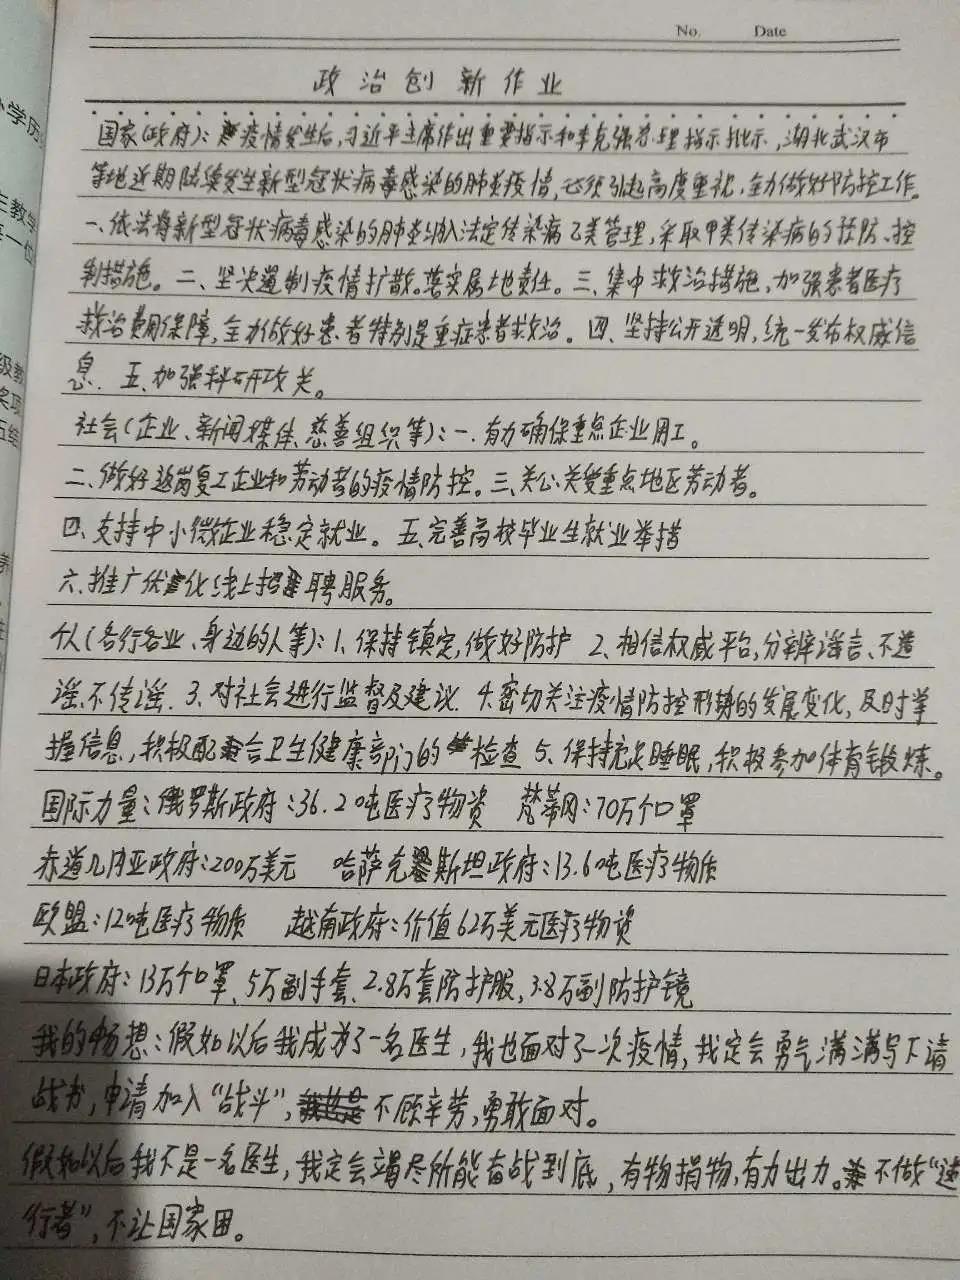 No. Date
政治创新作业
国家(政府): 疫情发生后,习近平主席作出重要指示和李克强总理指示批示,湖北武汉市
等地近期陆续发生新型冠状病毒感染的肺炎疫情,必须引起高度重视,全力做好防控工作。
一、依法将新型冠状病毒感染的肺炎纳入法定传染病乙类管理,采取甲类传染病的预防、控
制措施。二、坚决遏制疫情扩散。落实属地责任。三、集中救治措施,加强患者医疗
救治费用保障,全力做好患者特别是重症患者救治。四、坚持公开透明,统一发布权威信
息. 五、加强科研攻关。
社会(企业、新闻媒体、慈善组织等):一.有力确保重点企业用工。
二、做好返岗复工企业和劳动者的疫情防控。三、关心关爱重点地区劳动者。
四、支持中小微企业稳定就业。五、完善高校毕业生就业举措
六、推广优化线上招聘服务。
个人(各行各业、身边的人等):1、保持镇定,做好防护 2、相信权威平台,分辨谣言、不造
谣、不传谣. 3、对社会进行监督及建议. 4、密切关注疫情防控形势的发展变化,及时掌
握信息,积极配合卫生健康部门的检查 5、保持充足睡眠,积极参加体育锻炼。
国际力量:俄罗斯政府:36.2吨医疗物资 梵蒂冈:70万个口罩
赤道几内亚政府:200万美元 哈萨克斯坦政府:13.6吨医疗物质
欧盟:12吨医疗物质 越南政府:价值62万美元医疗物资
日本政府:13万个口罩、5万副手套、2.8万套防护服,3.8万副防护镜
我的畅想:假如以后我成为了一名医生,我也面对了一次疫情,我定会勇气满满写下请
战书,申请加入“战斗”,不顾辛劳,勇敢面对。
假如以后我不是一名医生,我定会竭尽所能奋战到底,有物捐物,有力出力。不做“逆
行者”,不让国家困。
小学历
主教学
某一位
级教
奖项
五结